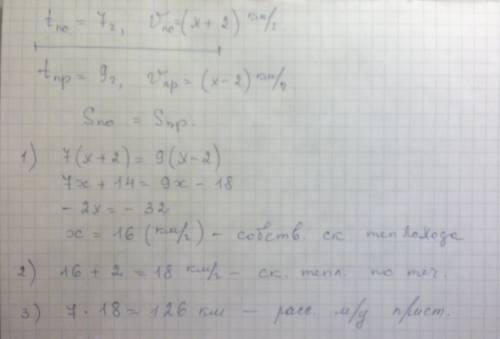 tпо = 7ч, Vпо=(x+2) км/ч
tпр = 9ч, Vпр=(x-2) км/ч
Sпо = Sпр.
1) 7(x+2)=9(x-2)
7x+14=9x-18
-2x=-32
x=16 (км/ч) - собств. ск. теплохода
2) 16+2=18 км/ч - ск. тепл. по теч.
3) 7·18=126 км - расс. м/д прист.